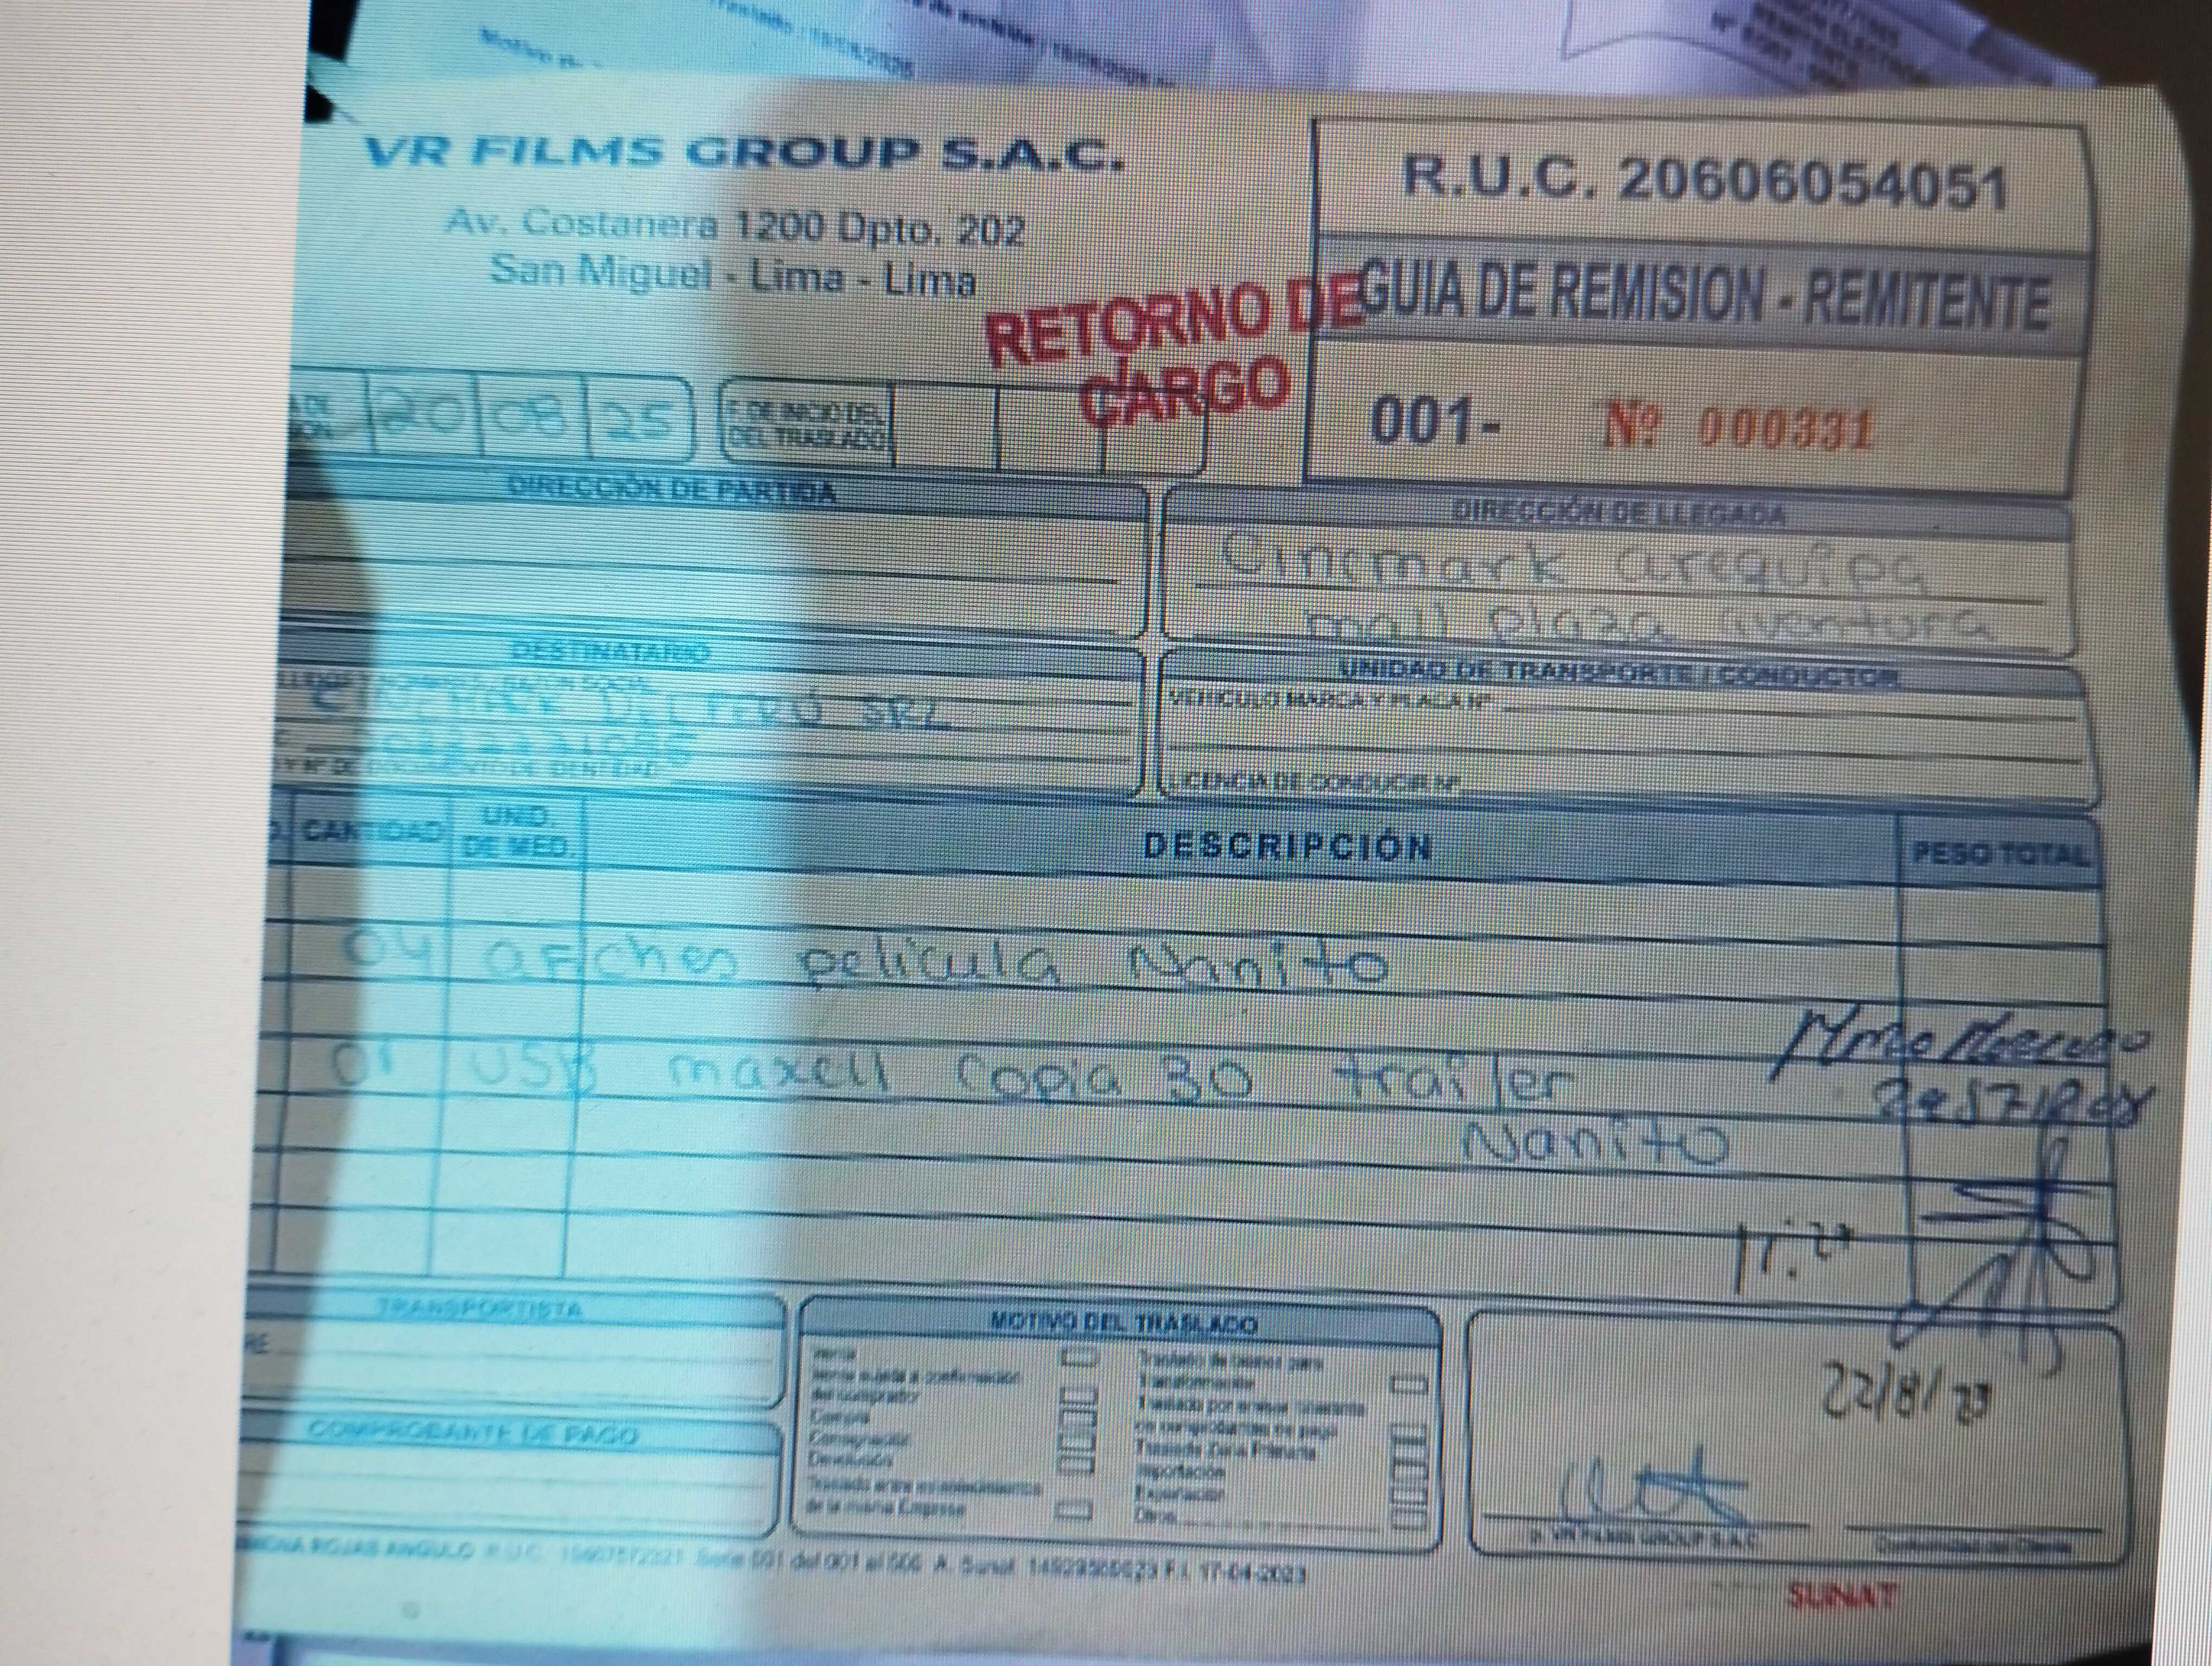 VR FILMS GROUP S.A.C.
Av. Costanera 1200 Dpto. 202
San Miguel - Lima - Lima
R.U.C. 20606054051
GUIA DE REMISION - REMITENTE
001- Nº 000331
RETORNO DE
CARGO
20 08 25
F. DE INICIO DEL
DEL TRASLADO
DIRECCIÓN DE PARTIDA
DIRECCIÓN DE LLEGADA
Cinemark arequipa
mall plaza aventura
DESTINATARIO
DEL PERÚ SRL
UNIDAD DE TRANSPORTE / CONDUCTOR
VEHICULO MARCA Y PLACA Nº
LICENCIA DE CONDUCIR Nº
Y Nº DE DOCUMENTO DE IDENTIDAD
CANTIDAD UNID. DE MED. DESCRIPCIÓN PESO TOTAL
04 afiches pelicula Nanito
01 USB maxell copia 30 trailer
Nanito
TRANSPORTISTA
COMPROBANTE DE PAGO
MOTIVO DEL TRASLADO
Venta
Venta sujeta a confirmación
del comprador
Compra
Consignación
Devolución
Traslado entre establecimientos
de la misma Empresa
Traslado de bienes para
Transformación
Traslado por emisor itinerante
de comprobantes de pago
Traslado Zona Primaria
Importación
Exportación
Otros
22/8/
p. VR FILMS GROUP S.A.C.
Conformidad del Cliente
ROJAS ANGULO R.U.C. Serie 001 del 001 al 500 F.I. 17-04-2023
SUNAT